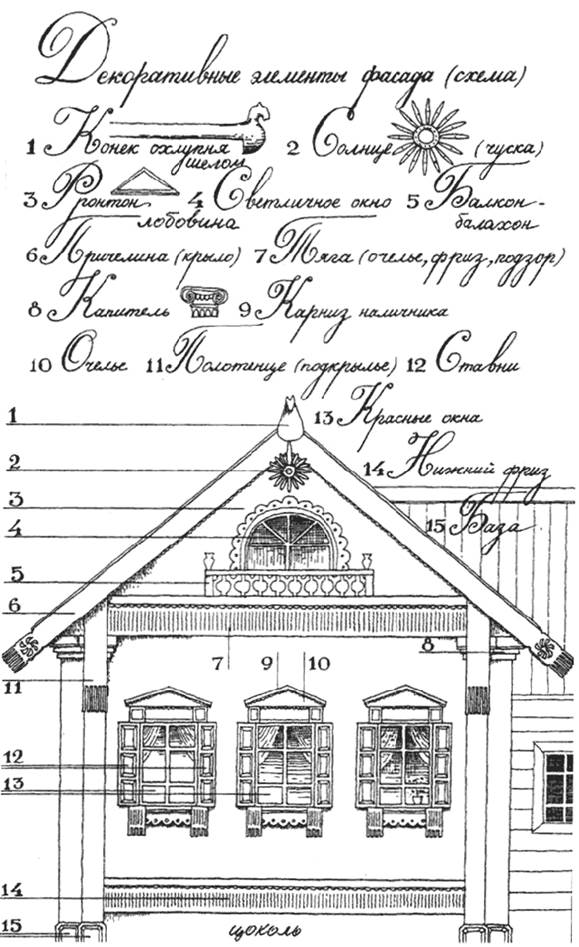 Декоративные элементы фасада (схема)
1 Конек охлупня 2 Солнце (чуска)
шелом
3 Фронтон 4 Светличное окно 5 Балкон-
лобовина балахон
6 Причелина (крыло) 7 Тяга (очелье, фриз, подзор)
8 Капитель 9 Карниз наличника
10 Очелье 11 Полотенце (подкрылье) 12 Ставни
1 13 Красные окна
2 14 Нижний фриз
3
4 15 База
5
6
7 9 10 8
11
12
13
14
15 цоколь